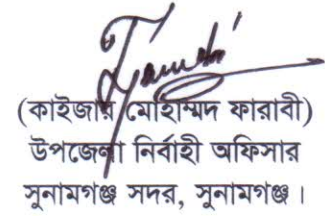 (কাইজার মোহাম্মদ ফারাবী)
উপজেলা নির্বাহী অফিসার
সুনামগঞ্জ সদর, সুনামগঞ্জ।